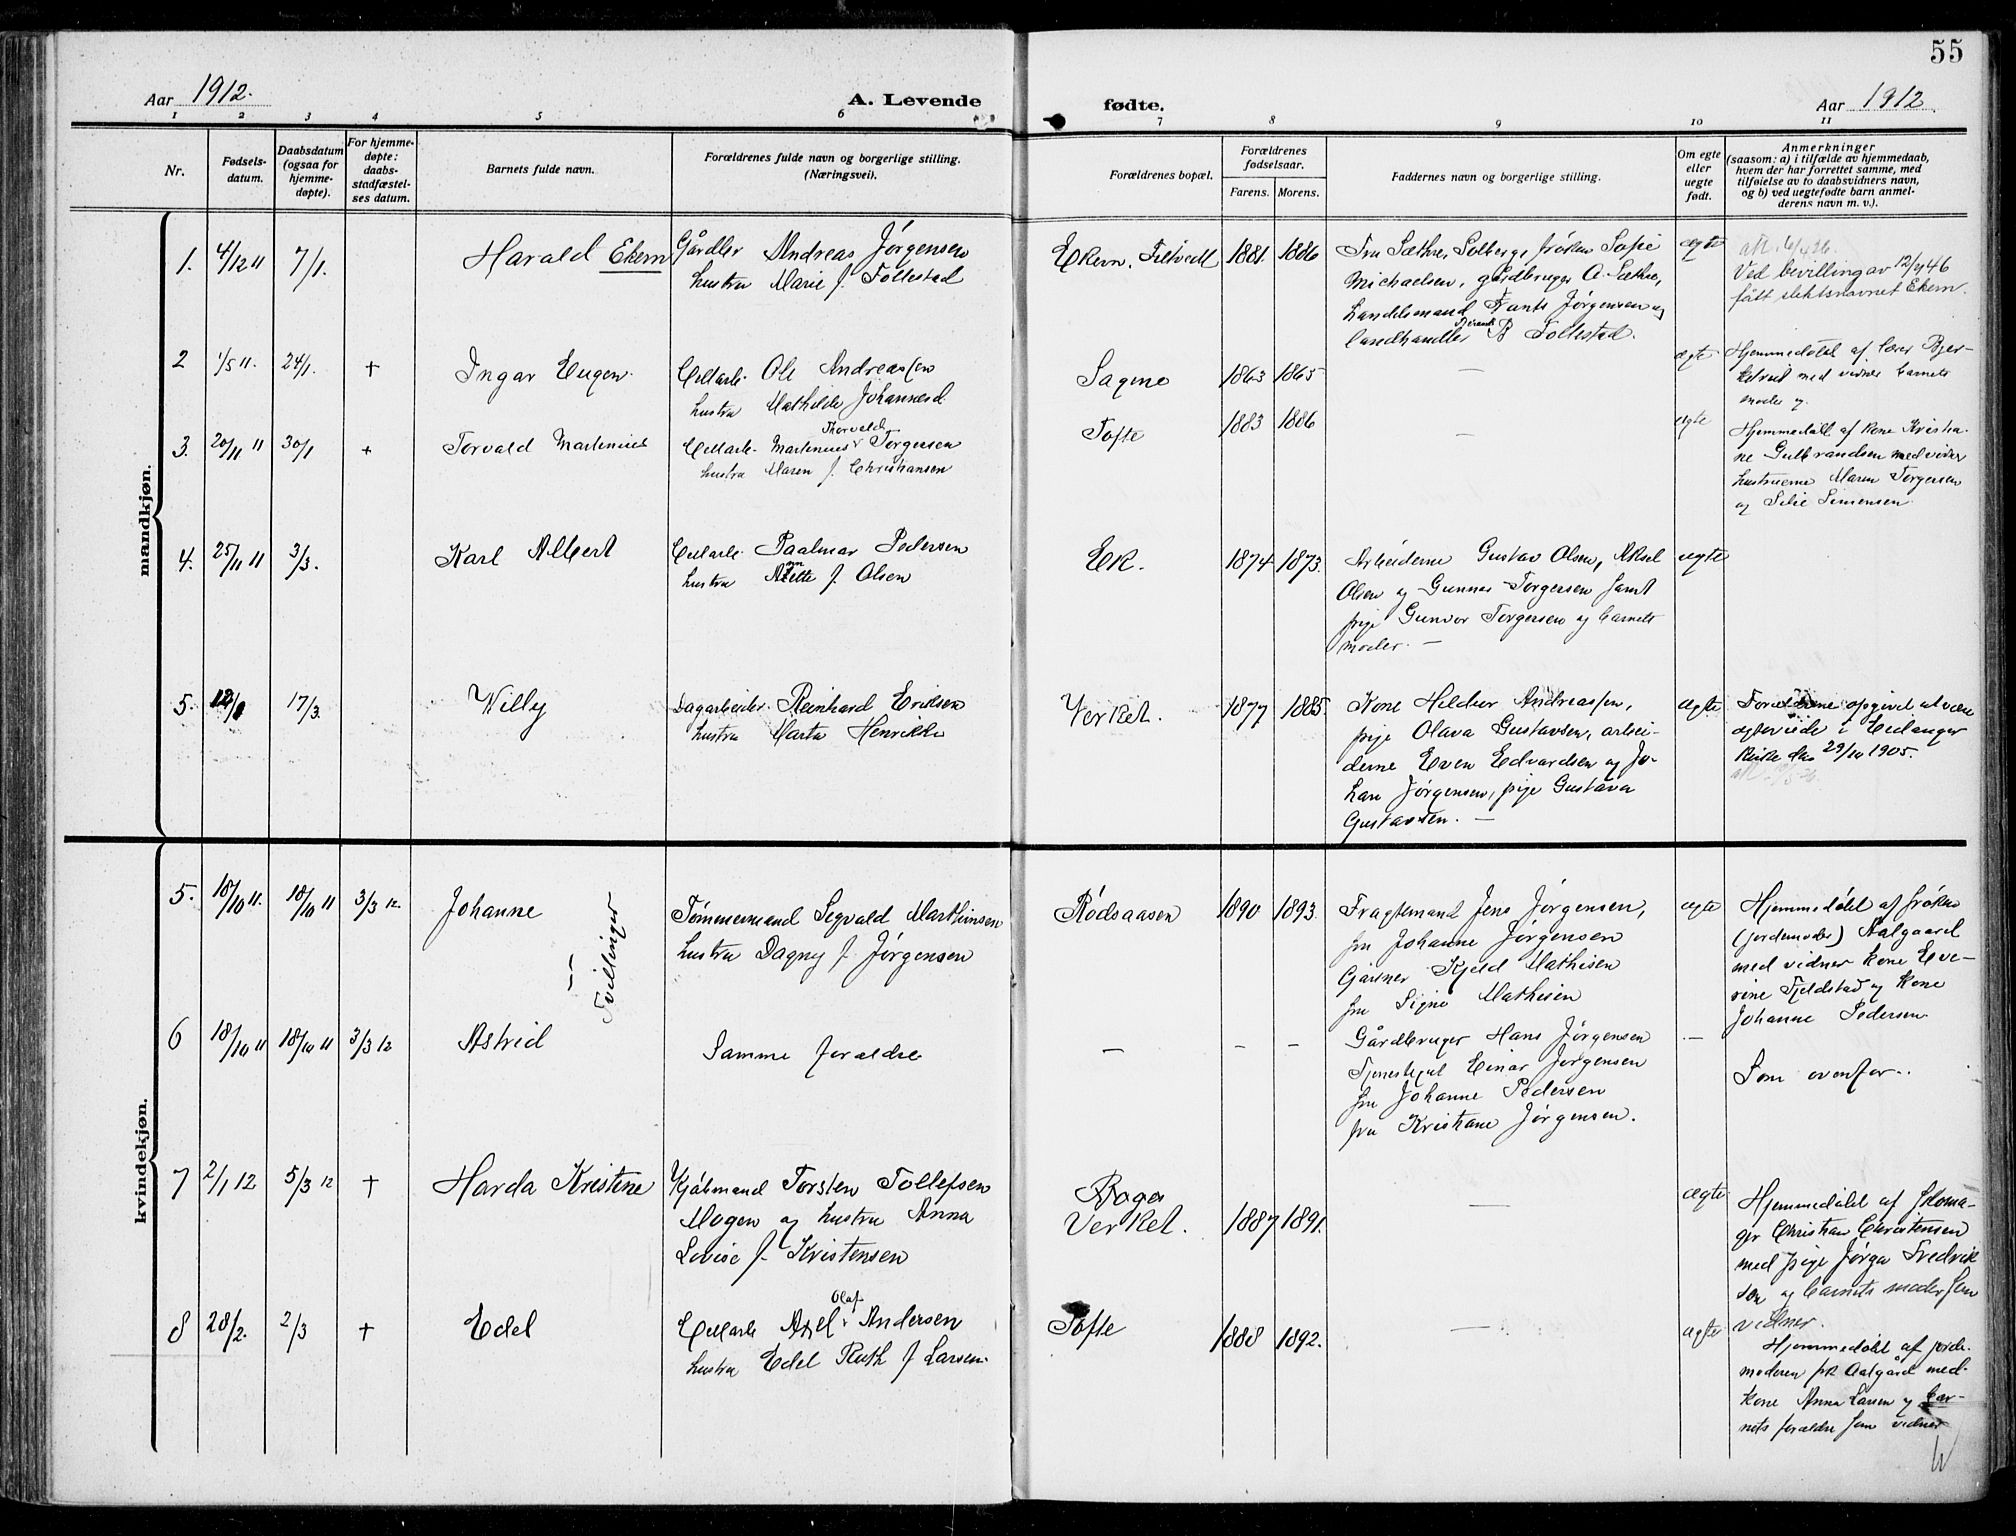 55
Aar 1912.
A. Levende
fødte.
Aar 1912
1 2 3 4 5 6 7 8 9 10 11
Nr.
Fødsels-
datum.
Daabsdatum
(ogsaa for
hjemme-
døpte).
For hjemme-
døpte:
daabs-
stadfæstel-
ses datum.
Barnets fulde navn.
Forældrenes fulde navn og borgerlige stilling.
(Næringsvei).
Forældrenes bopæl.
Forældrenes
fødselsaar.
Farens. Morens.
Faddernes navn og borgerlige stilling.
Om egte
eller
uegte
født.
Anmerkninger
(saasom: a) i tilfælde av hjemmedaab,
hvem der har forrettet samme, med
tilføielse av to daabsvidners navn,
og b) ved uegtefødte barn anmel-
derens navn m. v.).
mandkjøn.
1. 4/12 11 7/1. Harald Ekern
Gårdbr Andreas Jørgensen
hustru Marie f. Follestad
Ekern, 1881. 1886
Fru Sæthre, Solberg, frøken Sofie
Michaelsen, gårdbruger A. Sæthre,
Landhandler B Follestad.
egte
Ved bevilling av 12/9 46
fått slektsnavnet Ekern.
2 1/5 11. 24/1. + Ingar Eugen.
Cellarb. Ole Andreassen
hustru Mathilde Johannesd.
Sagene 1863 1865 —
egte
Hjemmedøbt af lærer Bjer-
med vidner barnets
moder og
3. 20/11 11 30/1 + Torvald Martinius
Cellarb. Martinius Thorvald Torgersen
hustru Maren f. Christiansen
Tofte 1883 1886 —
egte
Hjemmedøbt af kone Kristia-
ne Gulbrandsen med vidner
hustruerne Maren Torgersen
og Silie Simensen.
4. 25/11 11 3/3. Karl Albert
Cellarb. Paalmar Pedersen
hustru Anette f. Olsen
Ek. 1874 1873.
Arbeiderne Gustav Olsen, Aksel
Olsen og Gunnar Torgersen samt
pige Gunvor Torgersen og barnets
moder. —
egte
5. 17/3. Willy
Dagarbeider Reinhard Eriksen
hustru Marta Henrikke
Verket. 1877 1885.
Kone Hildur Andreassen,
pige Olava Gustavsen, arbei-
derne Even Edvardsen og Jo-
han Jørgensen, pige Gustava
Gustavsen. —
egte
Forældrene opgivet at være
egteviede i Eidanger
kirke den 29/10 1905.
kvindekjøn.
5. 18/10 11. 18/10 11 3/3 12. Johanne
Tvillinger
Tømmermand Sigvald Marthinsen
hustru Dagny f. Jørgensen
Rødsaasen 1890 1893.
Fragtemand Jens Jørgensen,
fru Johanne Jørgensen
Gårtner Kjeld Mathisen
fru Signe Mathisen
egte
Hjemmedøbt af frøken
(jordemoder) Aalgaard
med vidner kone Eve-
rine Fjeldstad og kone
Johanne Pedersen.
6 18/10 11 18/10 11 3/3 12 Astrid
Samme forældre
— — —
Gårdbruger Hans Jørgensen
Einar Jørgensen
fru Johanne Pedersen
fru Kristiane Jørgensen.
—
Som ovenfor.
7 2/1 12 5/3 12 + Harda Kristine
Kjøbmand Torsten Tollefsen
Mogen og hustru Anna
Lovise f. Kristensen
Verket. 1887 1891. —
egte
Hjemmedøbt af skoma-
ger Christian Christensen
med pige Jørga Fredrik
sen og barnets moder som
vidner.
8 28/2. 2/3 + Edel
Cellarb Axel Olaf Andersen
hustru Edel Ruth f Larsen.
Tofte 1888 1892. —
egte
Hjemmedøbt af jorde-
moderen frk Aalgård med
kone Anna Larsen og bar-
nets forældre som vidner